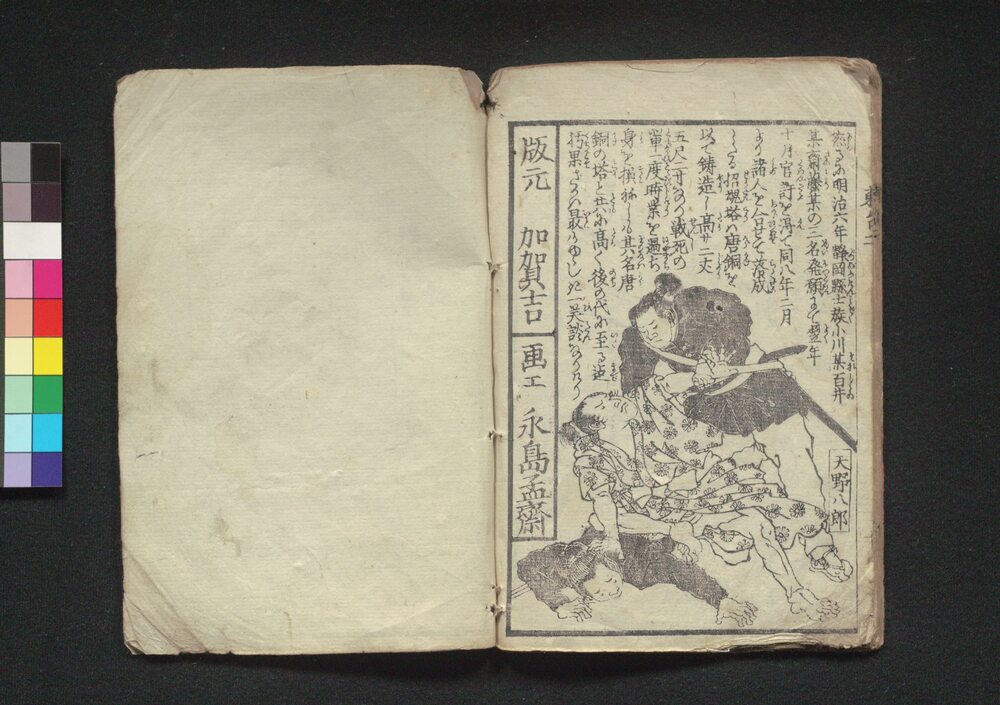 明治六年静岡縣士族小川某百井
某斎藤某の三名発願にて翌年
十月官許を得て同八年二月
より諸人を合せて落成
しける招魂塔ハ唐銅を
以て鋳造し高サ二丈
五尺二寸なりの戦死の
軍一度時業を過ち
身を損ねしも其名唐
銅の塔と共に高く後の代に至る迄
朽果ざるハ最うゆゝしき美談なりけり
天野八郎
版元 加賀吉
画工 永島孟齋